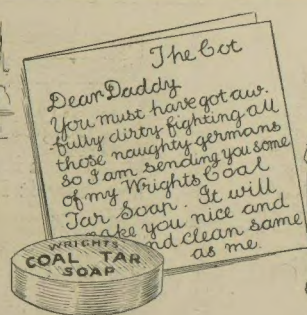 The Cot
Dear Daddy
You must have got aw-
fully dirty fighting all
those naughty germans
so I am sending you some
of my Wrights Coal
Tar Soap. It will
you nice and
clean same
as me.
WRIGHTS
COAL TAR
SOAP